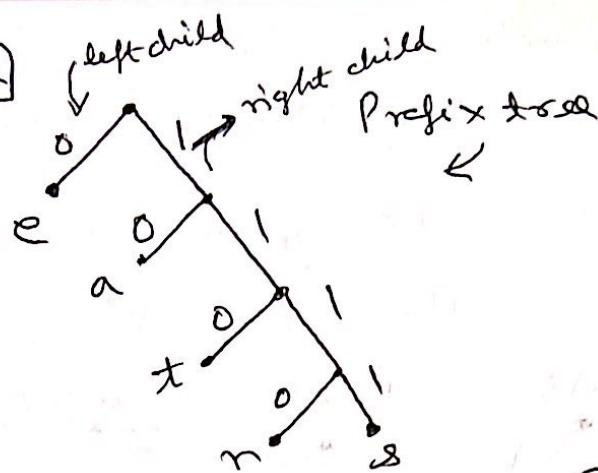 left child
right child
Prefix tree
0 1
e
0 1
a
0 1
t
0 1
n s